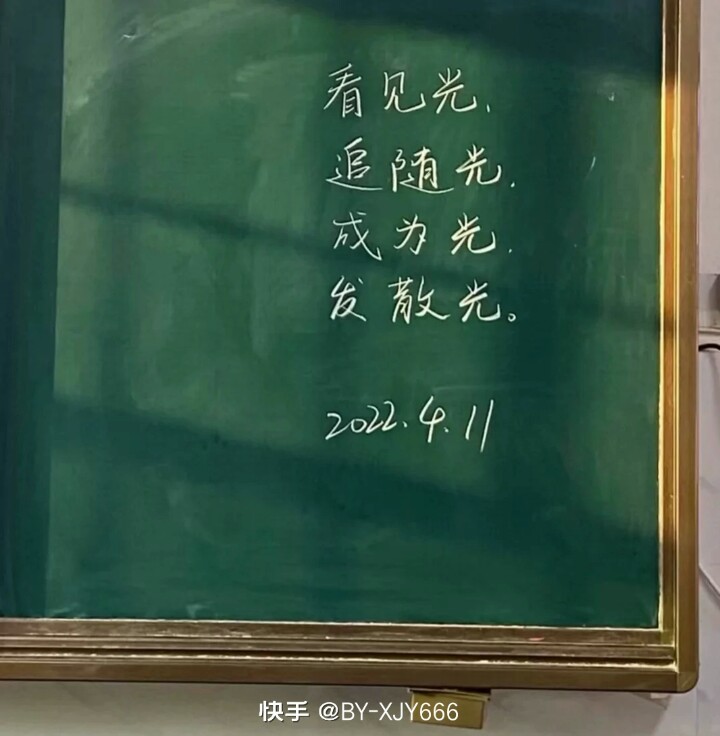 看见光、
追随光.
成为光.
发散光。
2022.4.11
快手 @BY-XJY666